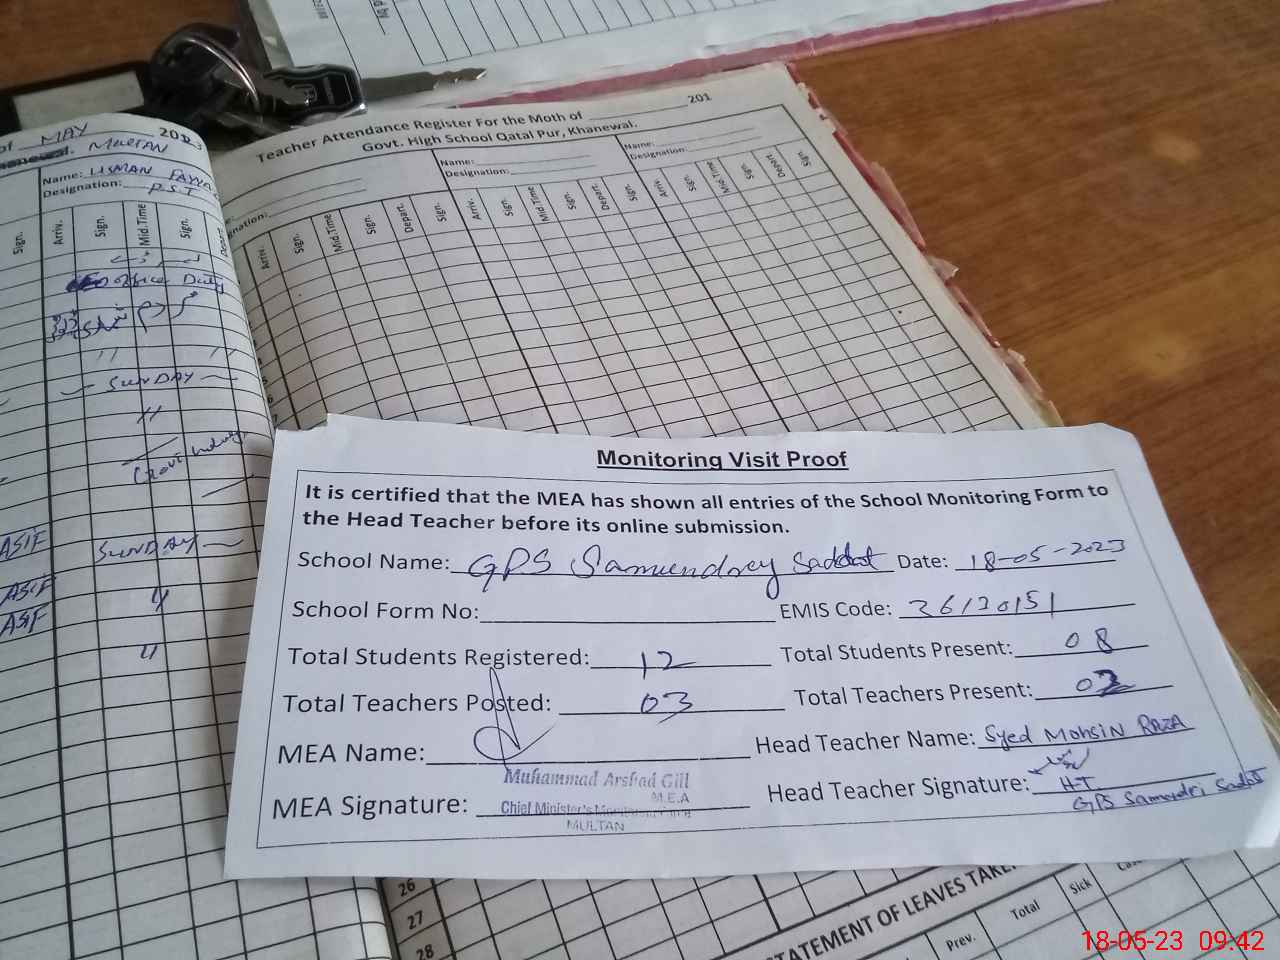 of MAY 2023
Khanewal. MULTAN
Name: USMAN
Designation: P.S.T
Sign. Arriv. Sign. Mid.Time Sign. Depart
office Duty
SUNDAY
ASIF SUNDAY
ASIF
ASIF
Teacher Attendance Register For the Moth of 201
Govt. High School Qatal Pur, Khanewal.
Name: Name:
Designation: Designation:
Arriv. Sign. Mid.Time Sign. Depart. Sign. Arriv. Sign. Mid.Time Sign. Depart. Sign. Arriv. Sign. Mid.Time Sign. Depart Sign.
Monitoring Visit Proof
It is certified that the MEA has shown all entries of the School Monitoring Form to
the Head Teacher before its online submission.
School Name: GPS Samundrey Saddat Date: 18-05-2023
School Form No: EMIS Code: 36120151
Total Students Registered: 12 Total Students Present: 08
Total Teachers Posted: 03 Total Teachers Present: 02
MEA Name: Head Teacher Name: Syed MOHSIN RAZA
Muhammad Arshad Gill
M.E.A
MEA Signature: Head Teacher Signature: H-T
Chief Minister's
MULTAN
GPS Samundri Sadat
26
27
28
STATEMENT OF LEAVES TAKEN
Prev. Total Sick
18-05-23 09:42